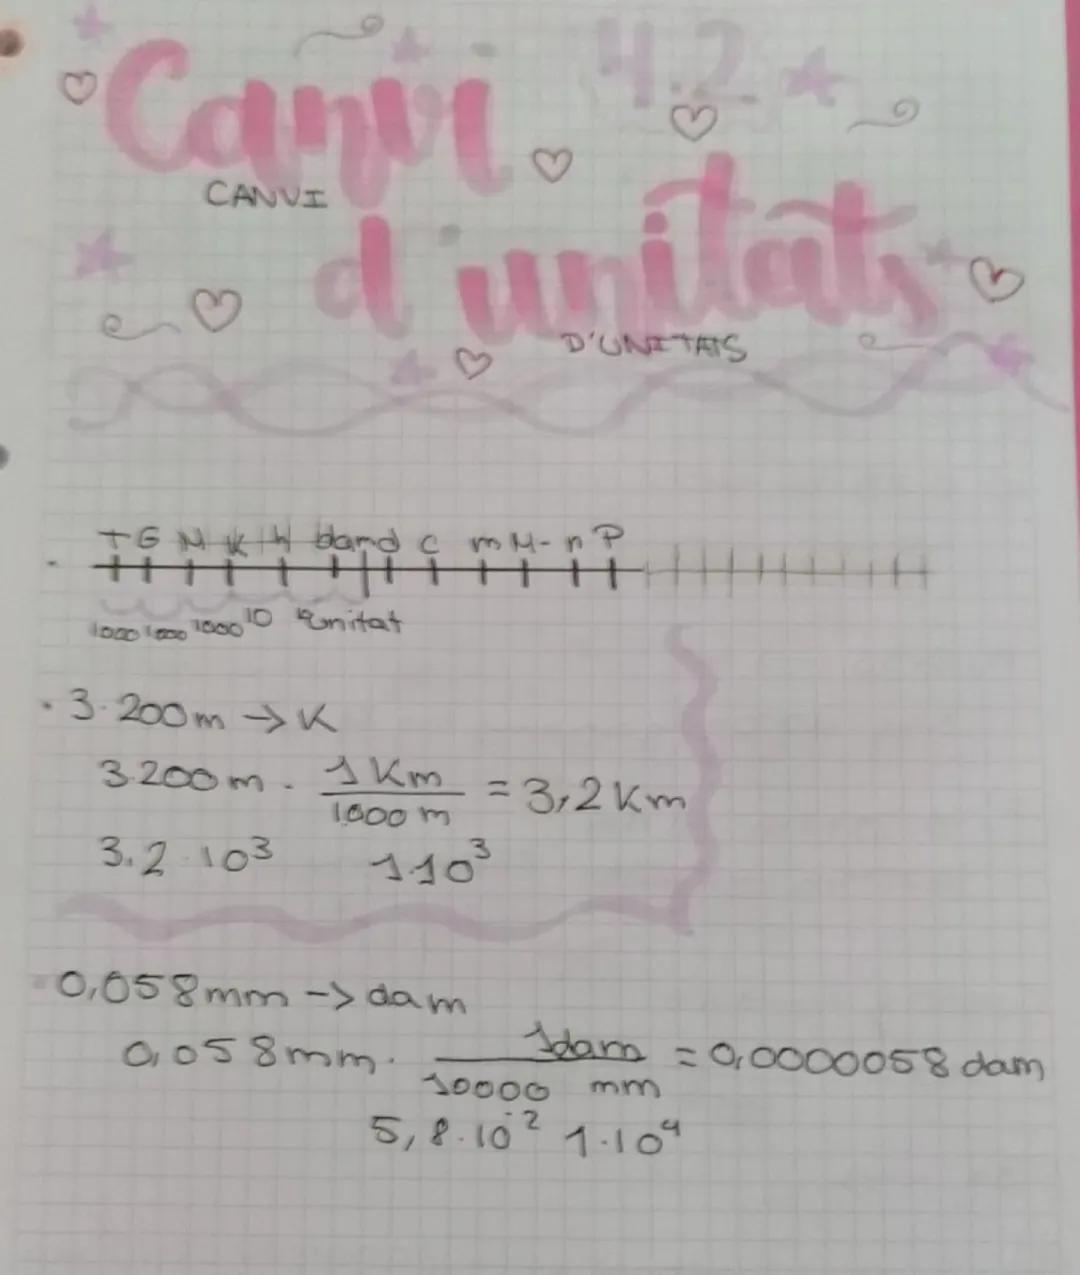 4.2
Canvi
CANVI
d'unitats
D'UNITATS
T G M K h dam d c m M- n P
1000 1000 1000 10 unitat
· 3.200m → K
3.200m · 1 Km = 3,2 Km
1.000 m
3,2·10³ 1·10³
· 0,058mm -> dam
0,058mm · 1dam = 0,0000058 dam
10000 mm
5,8·10⁻² 1·10⁴